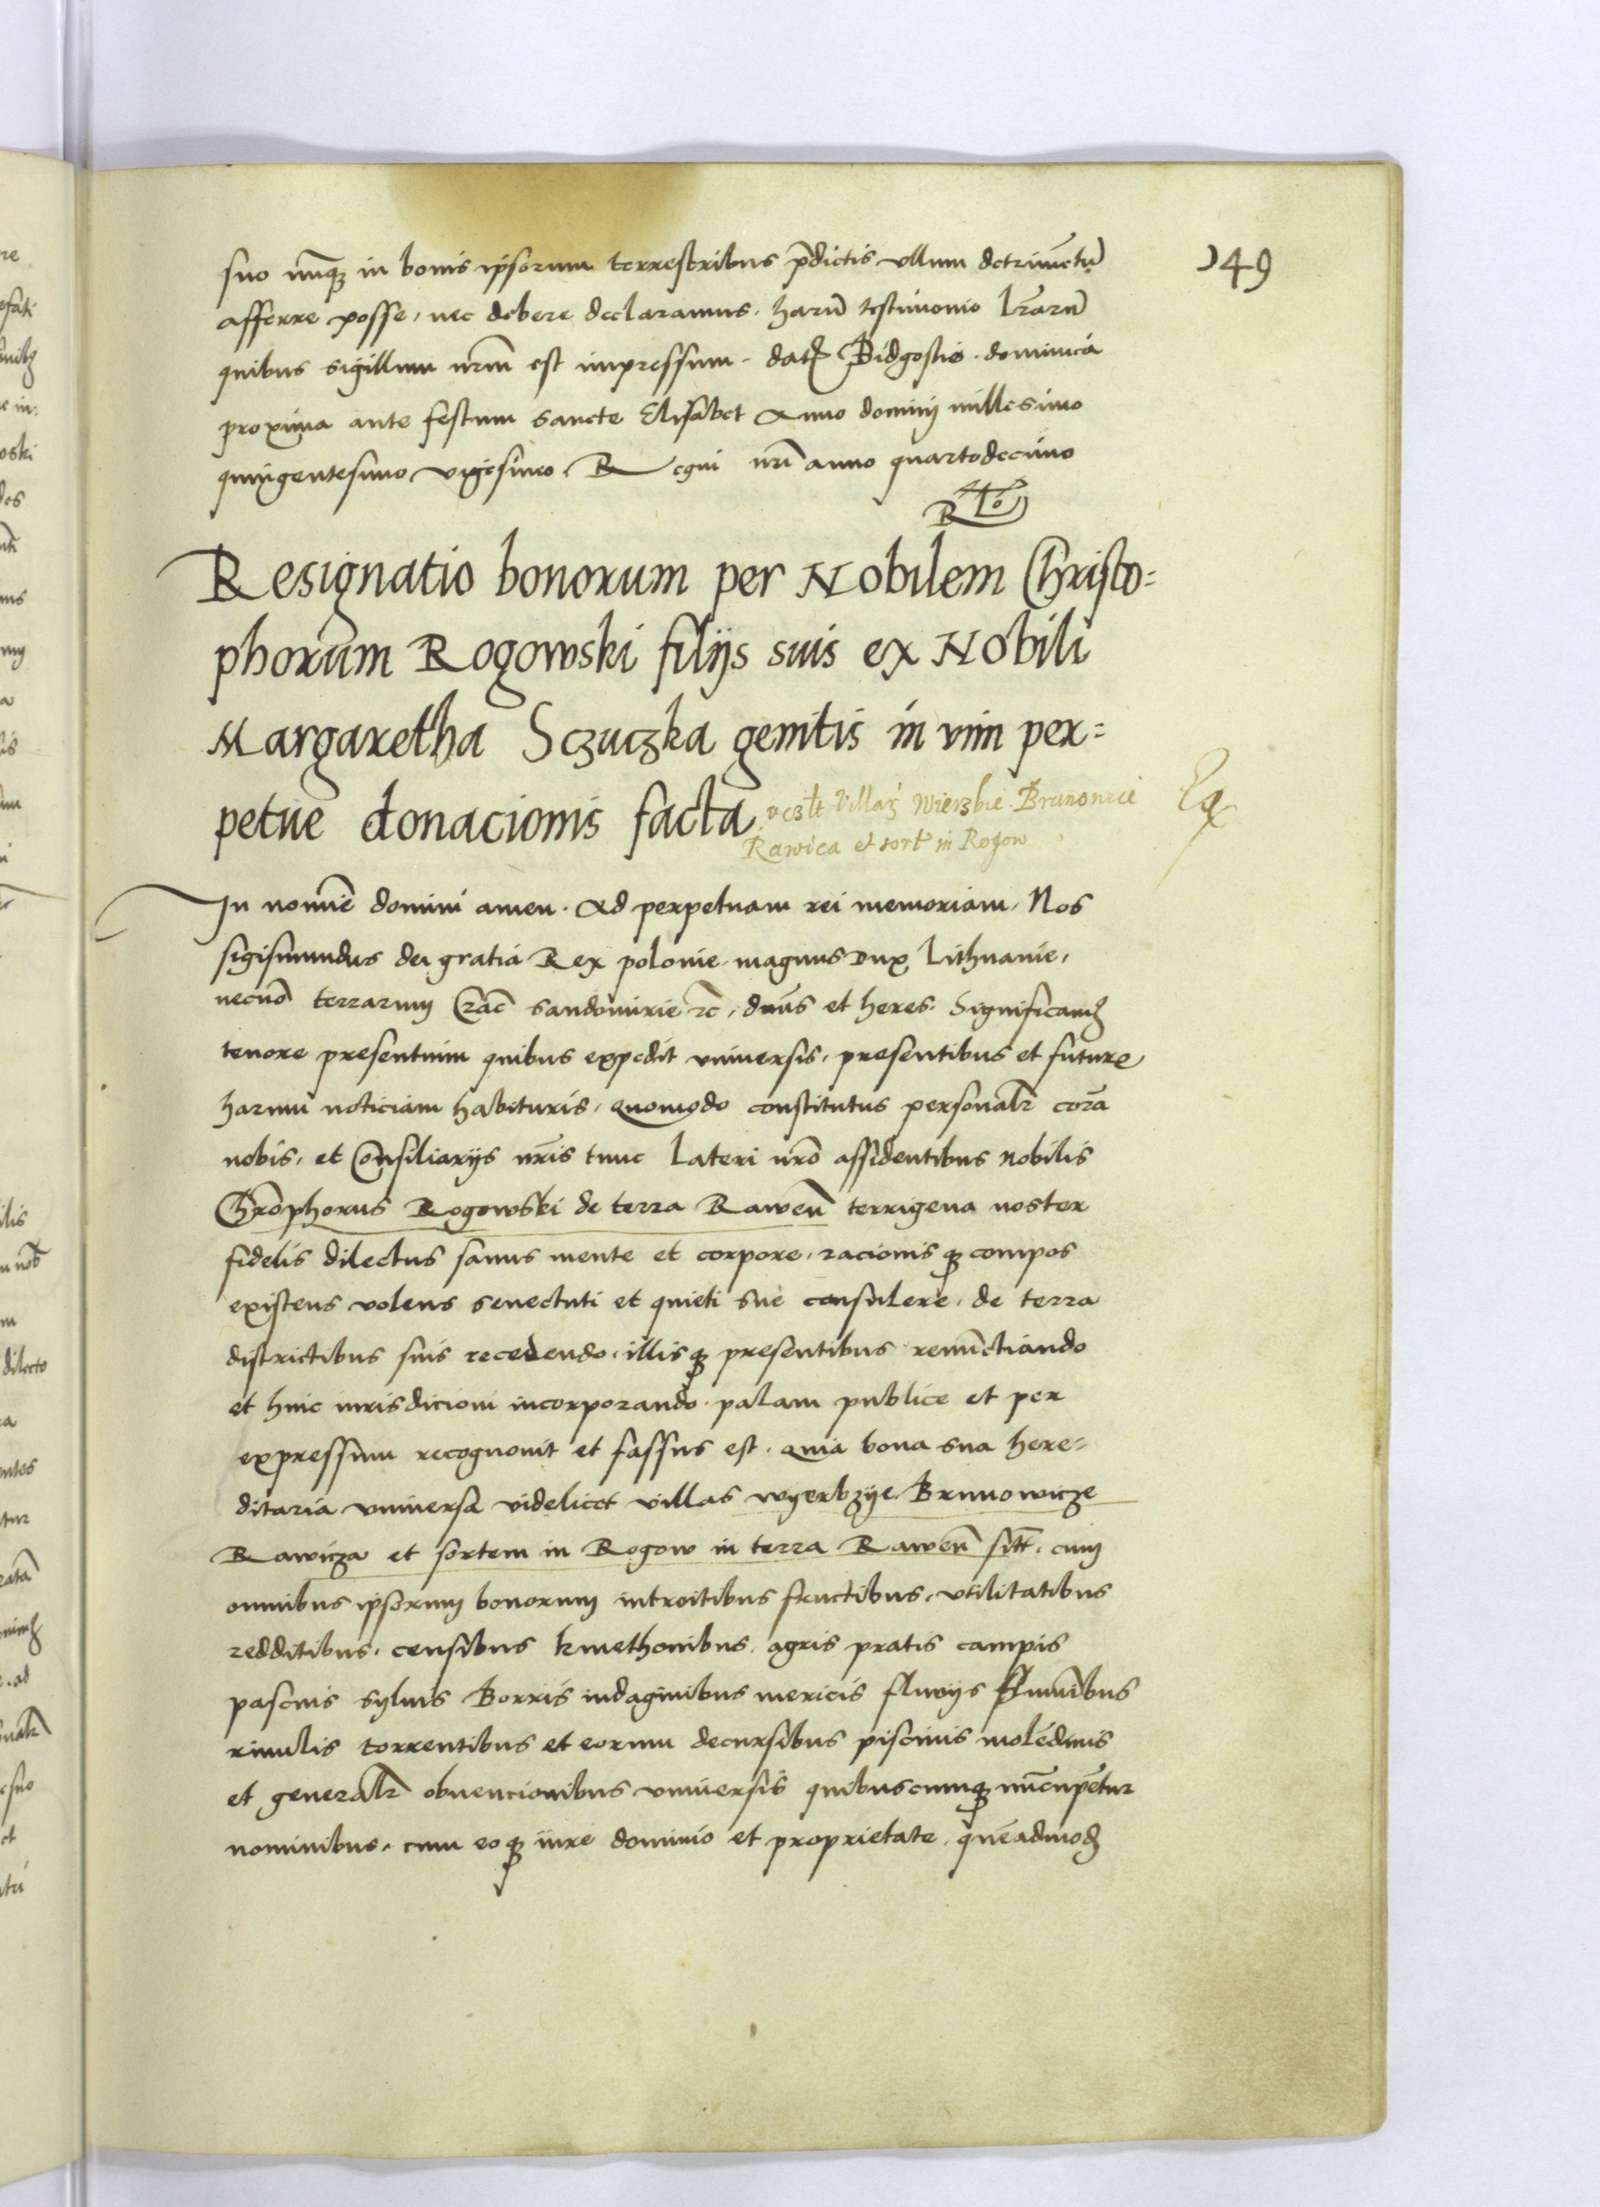 249
suo nunq̃ in bonis ipsorum terrestribus p̃dictis vllum detrimẽtũ
afferre posse, nec debere declaramus. harũ testimonio lr̃arũ
quibus sigillum nrm̃ est impressum. datꝭ Bidgostie. dominica
proxima ante festum sancte Elisabet Anno dominj millesimo
quingentesimo vigesimo. Regni nrĩ anno quartodecimo
Resignatio bonorum per Nobilem Christo=
phorum Rogowski filijs suis ex Nobili
Margaretha Sczuczka genitis in vim per=
petue donacionis facta
villaꝝ Wierzbie Brunowice
Rawica et sort̃ in Rogow
In nomĩe domini amen. Ad perpetuam rei memoriam. Nos
sigismundus dei gratia Rex polonie magnus Dux Lithuanie,
necnõ terrarum Crac̃ sandomirie ꝛc̃, dñus et heres. Significamꝰ
tenore presentium quibus expedit vniuersis, presentibus et futurꝭ
harum noticiam habituris, quomodo constitutus personalr̃ corã
nobis, et Consiliarijs nrĩs tunc lateri nrõ assidentibus nobilis
Chrõphorus Rogowski de terra Raweñ terrigena noster
fidelis dilectus sanus mente et corpore, racionisq̃ compos
existens volens senectuti et quieti sue consulere, de terra
districtibus suis recedendo, illisq̃ presentibus renũctiando
et huic iurisdicioni incorporando. palam publice et per
expressum recognouit et fassus est. quia bona sua here=
ditaria vniuersa videlicet villas wyerbzye Brunowicze
Rawicza et sortem in Rogow in terra Raweñ sitt̃. cum
omnibus ipsorum bonorum introitibus fructibus, vtilitatibus
redditibus, censibus kmethonibus, agris pratis campis
pascuis syluis Borris indaginibus mericis fluuijs flumĩbus
riuulis torrentibus et eorum decursibus piscinis molẽdinis
et generalr̃ obuencionibus vniuersis quibuscumq̃ nũcupẽtur
nominibus, cum eoq̃ iure dominio et proprietate, quẽadmodꝭ